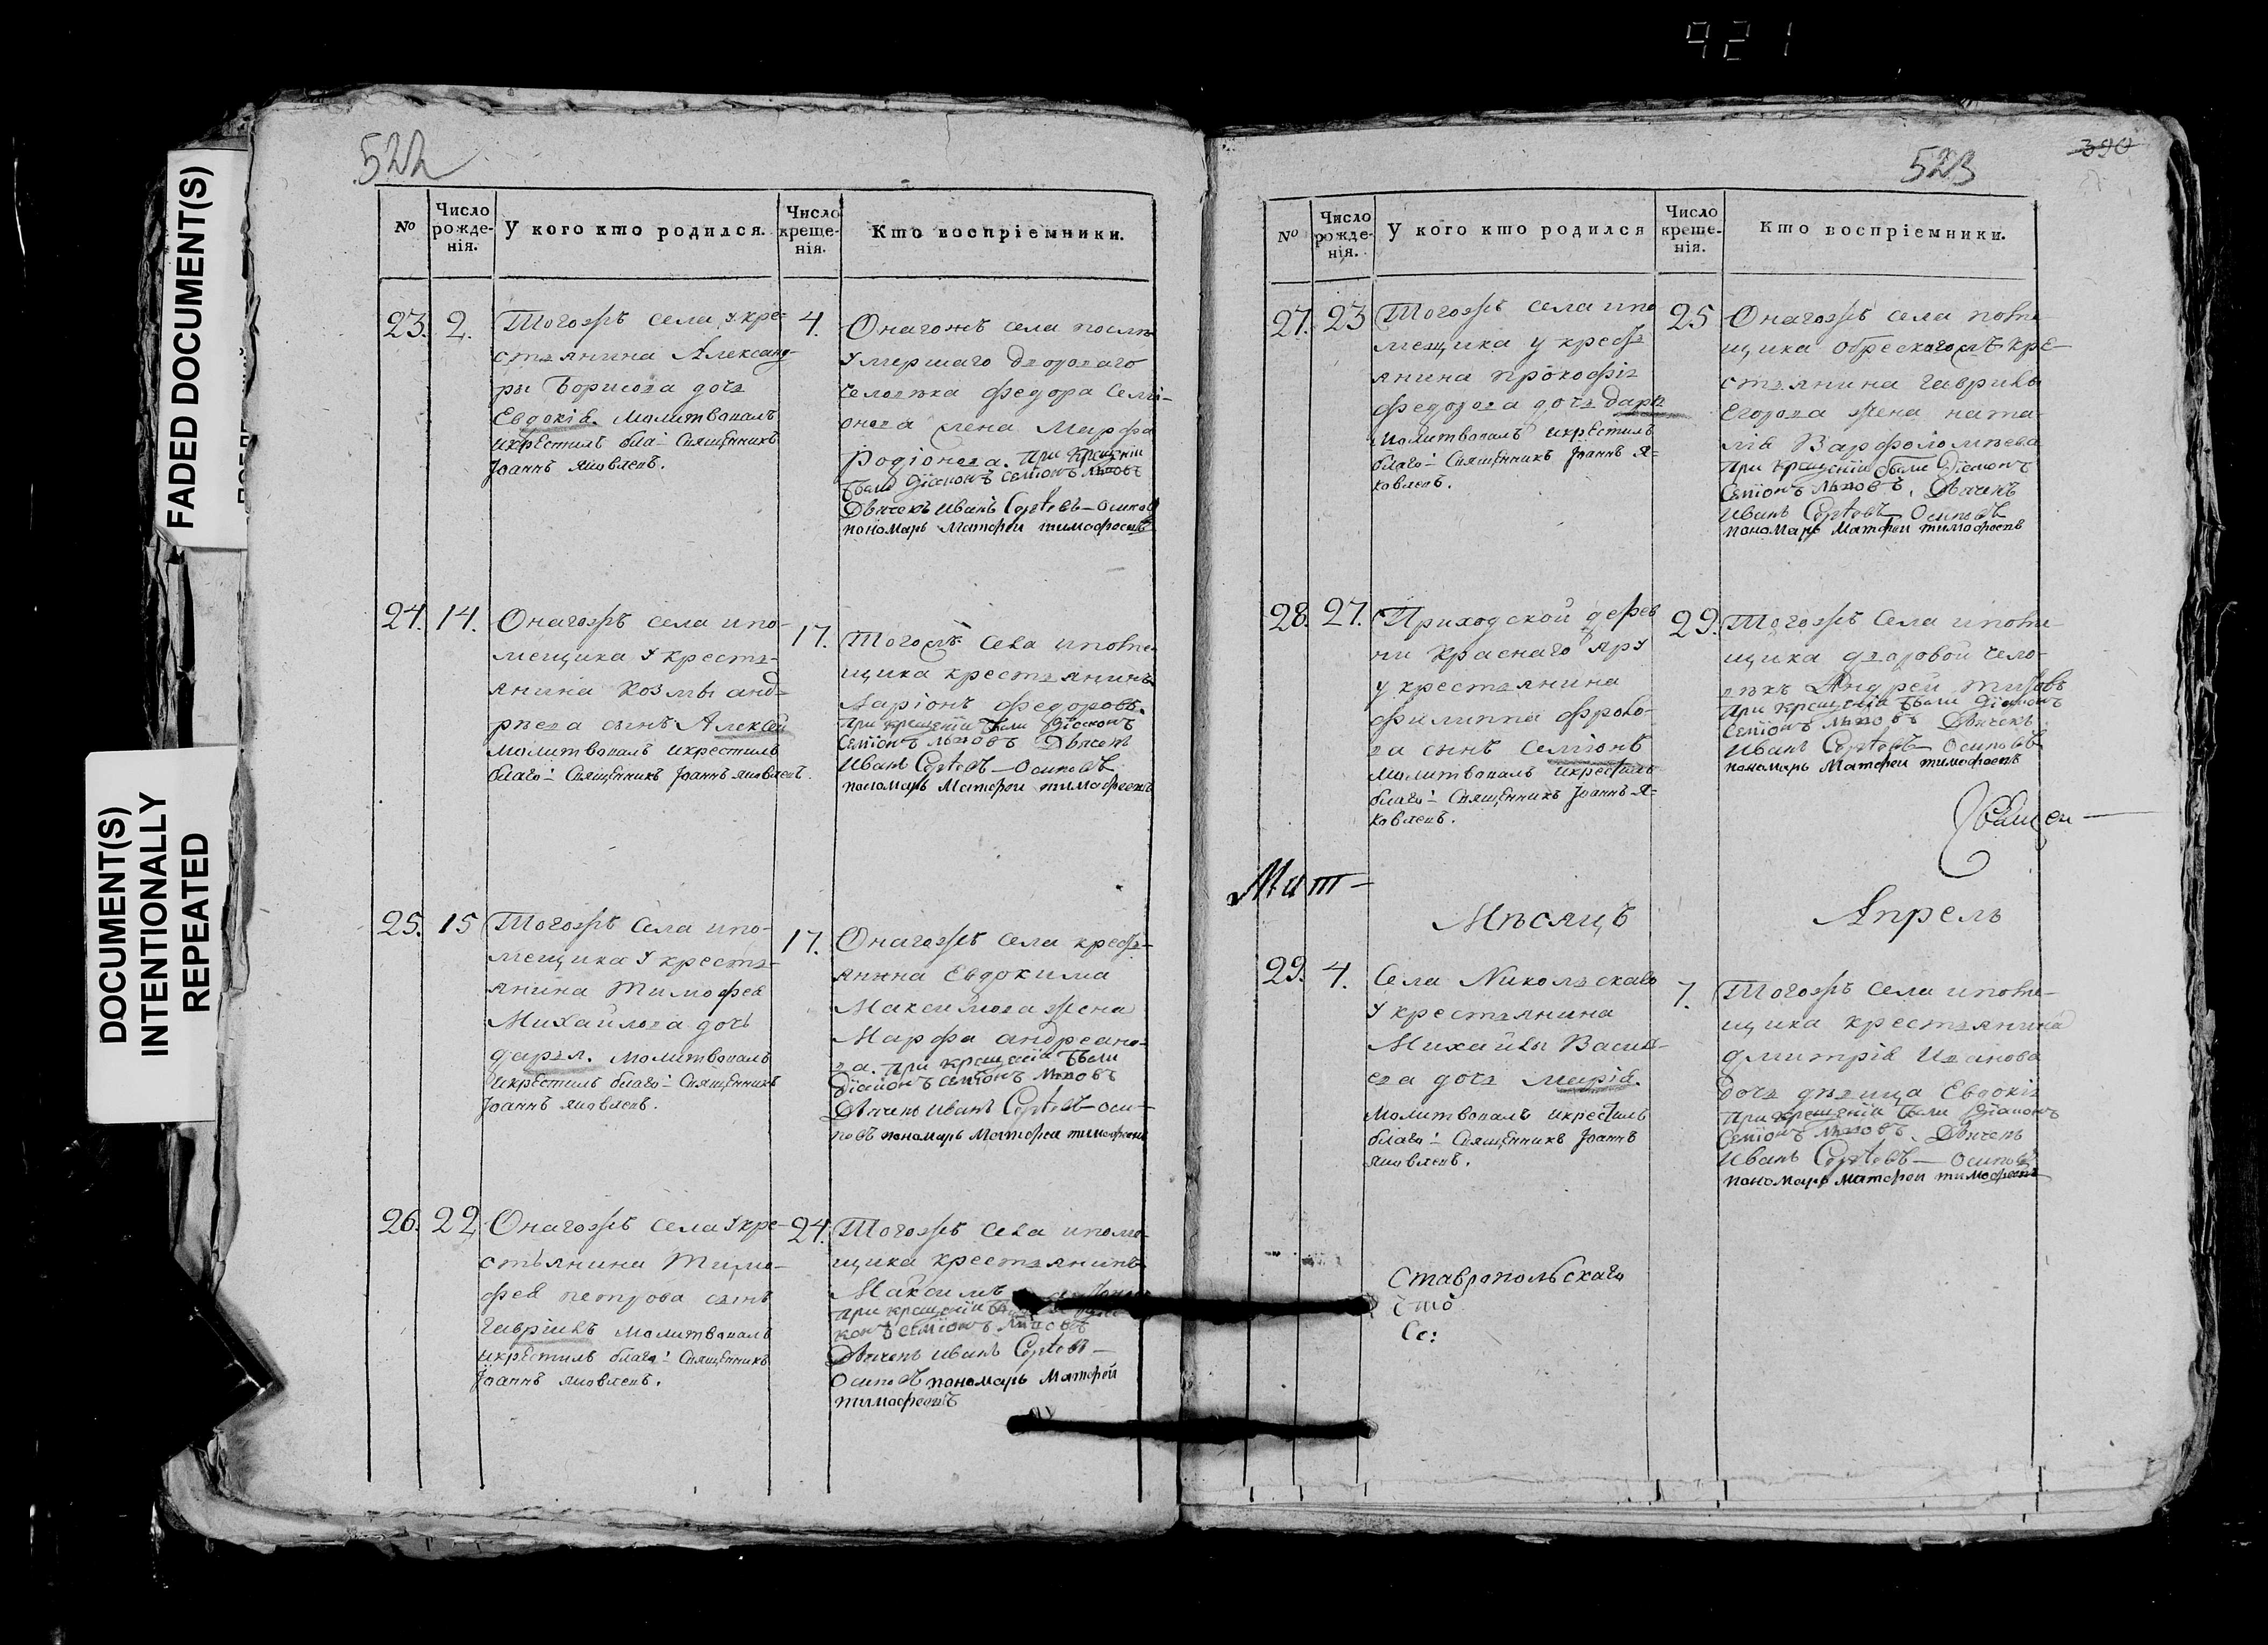 921
FADED DOCUMENT(S)
DOCUMENT(S)
INTENTIONALLY
REPEATED
522
№
Число рожде-нія.
У кого кто родился.
Число креще-нія.
Кто воспріемники.
23. 2.
Тогожъ села у кре-
стьянина Александ-
ры Борисова дочь
Евдокія. Молитвовалъ
икрестилъ бла: Священникъ
Іоаннъ Яковлевъ.
4.
Онагожъ села послѣ
умершаго двороваго
человѣка Федора Семі-
онова жена Марфа
Родіонова. При крещеніи
были Діаконъ Семіонъ Львовъ
Дьячекъ Иванъ Сергѣевъ Осиповъ
пономарь Матфей тимофеевъ
24. 14.
Онагожъ села ипо-
мещика у кресть-
янина Козмы анд-
рѣева сынъ Алексѣй
молитвовалъ икрестилъ
благо: Священникъ Іоаннъ Яковлевъ.
17.
Тогожъ села ипоме-
щика крестьянинъ
Ларіонъ Федоровъ.
При крещеніи были Діаконъ
Семіонъ Львовъ Дьячекъ
Иванъ Сергѣевъ Осиповъ
пономарь Матфей тимофеевъ
25. 15
Тогожъ села ипо-
мещика у кресть-
янина Тимофея
Михайлова дочь
дарья. Молитвовалъ
икрестилъ благо: Священникъ
Іоаннъ Яковлевъ.
17.
Онагожъ села кресть-
янина Евдокима
Максимова жена
Марфа андреано-
ва. При крещеніи были
Діаконъ Семіонъ Львовъ
Дьячекъ Иванъ Сергѣевъ Оси-
повъ пономарь Матфей тимофеевъ
26. 22
Онагожъ села у кре-
стьянина Тимо-
фея петрова сынъ
Гавріилъ молитвовалъ
икрестилъ благо: Священникъ
Іоаннъ Яковлевъ.
24.
Тогожъ села ипоме-
щика крестьянинъ
Максимъ
При крещеніи
конъ Семіонъ Львовъ
Дьячекъ Иванъ Сергѣевъ
Осиповъ пономарь Матфей
тимофеевъ
523
390
№
Число рожде-нія.
У кого кто родился
Число креще-нія.
Кто воспріемники.
27. 23
Тогожъ села ипо
мещика у кресть
янина прокофія
федорова дочь дарья
молитвовалъ икрестилъ
благо: Священникъ Іоаннъ Я-
ковлевъ.
25
Онагожъ села поме-
щика Обрескогожъ кре-
стьянина Гаврилы
Егорова жена ната-
лія Варфоломѣева
При крещеніи были Діаконъ
Семіонъ Львовъ. Дьячекъ
Иванъ Сергѣевъ Осиповъ
пономарь Матфей тимофеевъ
28. 27.
Приходской дерев
ни Краснаго Яру
у крестьянина
Филиппа Фроло-
ва сынъ Семіонъ
молитвовалъ икрестилъ
благо: Священникъ Іоаннъ Я-
ковлевъ.
29.
Тогожъ села ипоме-
щика дворовой чело-
вѣкъ Андрей Титовъ
При крещеніи были Діаконъ
Семіонъ Львовъ Дьячекъ
Иванъ Сергѣевъ Осиповъ
пономарь Матфей тимофеевъ
Священ-
Мит-
Мѣсяцъ Апрель
29. 4.
Села Никольскаго
у крестьянина
Михайлы Василь-
ева дочь марія.
Молитвовалъ икрестилъ
благо: Священникъ Іоаннъ
Яковлевъ.
7.
Тогожъ села ипоме-
щика крестьянина
дмитрія Иванова
дочь дѣвица Евдокія
При крещеніи были Діаконъ
Семіонъ Львовъ. Дьячекъ
Иванъ Сергѣевъ Осиповъ
пономарь Матфей тимофеевъ
Ставропольскаго
Се: